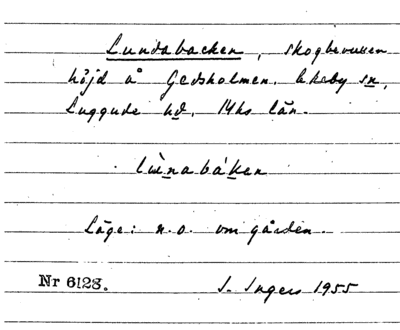 Lundabacken, skogbevuxen
höjd å Gedsholmen, Ekeby sn,
Luggude hd, Mhs län.
lùnabáken
Läge: n.o. om gården.
Nr 6128. I. Ingers 1955